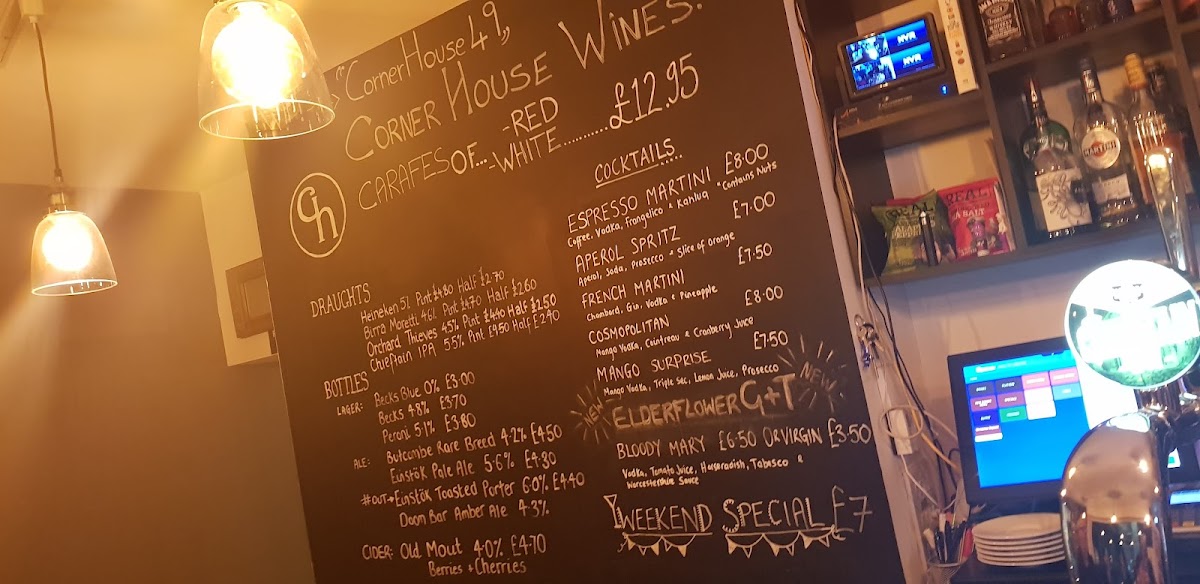 "CornerHouse49"
CORNER HOUSE WINES.
CARAFES OF... -RED
-WHITE.........£12.95
Ch
DRAUGHTS
Heineken 5% Pint £4.80 Half £2.70
Birra Moretti 4.6% Pint £4.70 Half £2.60
Orchard Thieves 4.5% Pint £4.40 Half £2.50
Chieftain IPA 5.5% Pint £4.50 Half £2.90
BOTTLES
LAGER: Becks Blue 0% £3.00
Becks 4.8% £3.70
Peroni 5.1% £3.80
ALE: Butcombe Rare Breed 4.2% £4.50
Einstök Pale Ale 5.6% £4.30
#OUT→Einstök Toasted Porter 6.0% £4.40
Doom Bar Amber Ale 4.3%
CIDER: Old Mout 4.0% £4.70
Berries + Cherries
COCKTAILS
ESPRESSO MARTINI £8.00
Coffee, Vodka, Frangelico & Kahlua *Contains Nuts
APEROL SPRITZ £7.00
Aperol, Soda, Prosecco & Slice of Orange
FRENCH MARTINI £7.50
Chambord, Gin, Vodka & Pineapple
COSMOPOLITAN £8.00
Mango Vodka, Cointreau & Cranberry Juice
MANGO SURPRISE £7.50
Mango Vodka, Triple Sec, Lemon Juice, Prosecco
NEW ELDERFLOWER G+T NEW
BLOODY MARY £6.50 OR VIRGIN £3.50
Vodka, Tomato Juice, Horseradish, Tabasco &
Worcestershire Sauce
WEEKEND SPECIAL £7
NVR
NVR
JACK DANIEL'S
MARTINI
REAL
REAL
SEA SALT